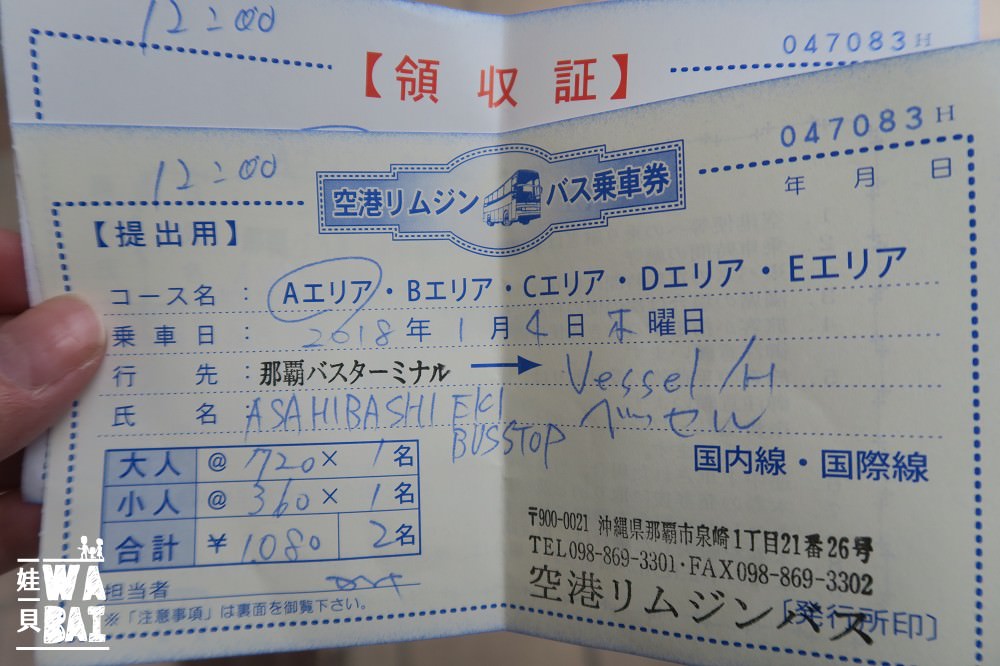 12:00
047083 H
【領収証】
047083 H
12:00
空港リムジン バス乗車券
年 月 日
【提出用】
コース名 : Aエリア・Bエリア・Cエリア・Dエリア・Eエリア
乗車日 : 2018年 1月 4日 木曜日
行先 : 那覇バスターミナル → Vessel/H
氏名 : ASAHIBASHI EKI ベッセル
BUSSTOP
大人 @ 720 × 1名
国内線・国際線
小人 @ 360 × 1名
合計 ¥ 1.080 2名
〒900-0021 沖縄県那覇市泉崎1丁目21番26号
TEL098-869-3301・FAX098-869-3302
担当者
空港リムジンバス
〔発行所印〕
※「注意事項」は裏面を御覧下さい。
娃貝 WA BAI